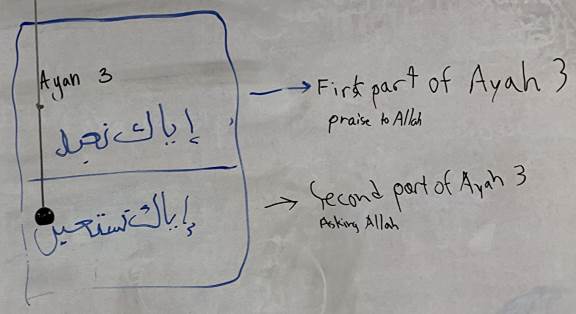 Ayah 3
إياك نعبد
إياك نستعين
First part of Ayah 3
praise to Allah
Second part of Ayah 3
Asking Allah